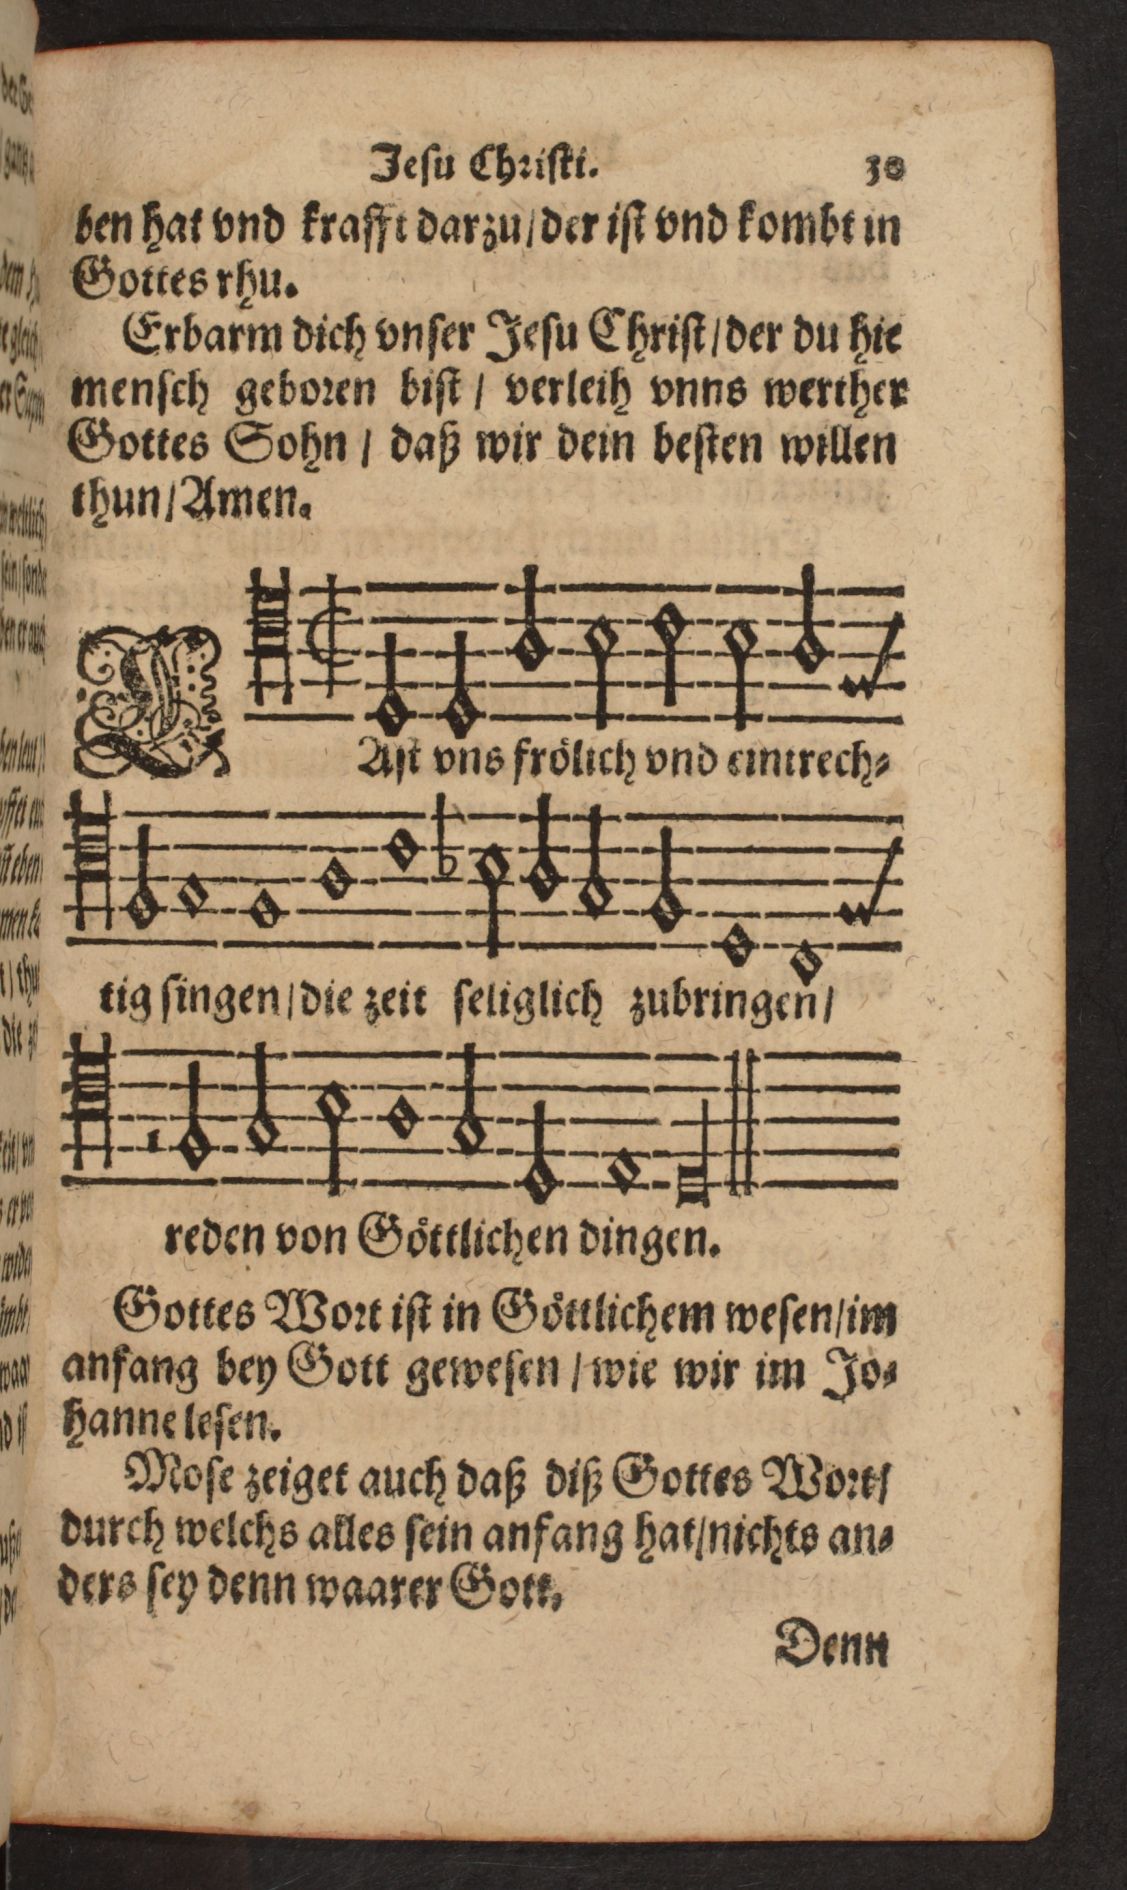 Jesu Christi. 30
ben hat vnd krafft darzu/der ist vnd kombt in
Gottes rhu.
Erbarm dich vnser Jesu Christ/der du hie
mensch geboren bist / verleih vnns werther
Gottes Sohn / daß wir dein besten willen
thun/Amen.
LAst vns frölich vnd eintrech-
tig singen/die zeit seliglich zubringen/
reden von Göttlichen dingen.
Gottes Wort ist in Göttlichem wesen/im
anfang bey Gott gewesen /wie wir im Jo-
hanne lesen.
Mose zeiget auch daß diß Gottes Wort/
durch welchs alles sein anfang hat/nichts an-
ders sey denn waarer Gott,
Denn